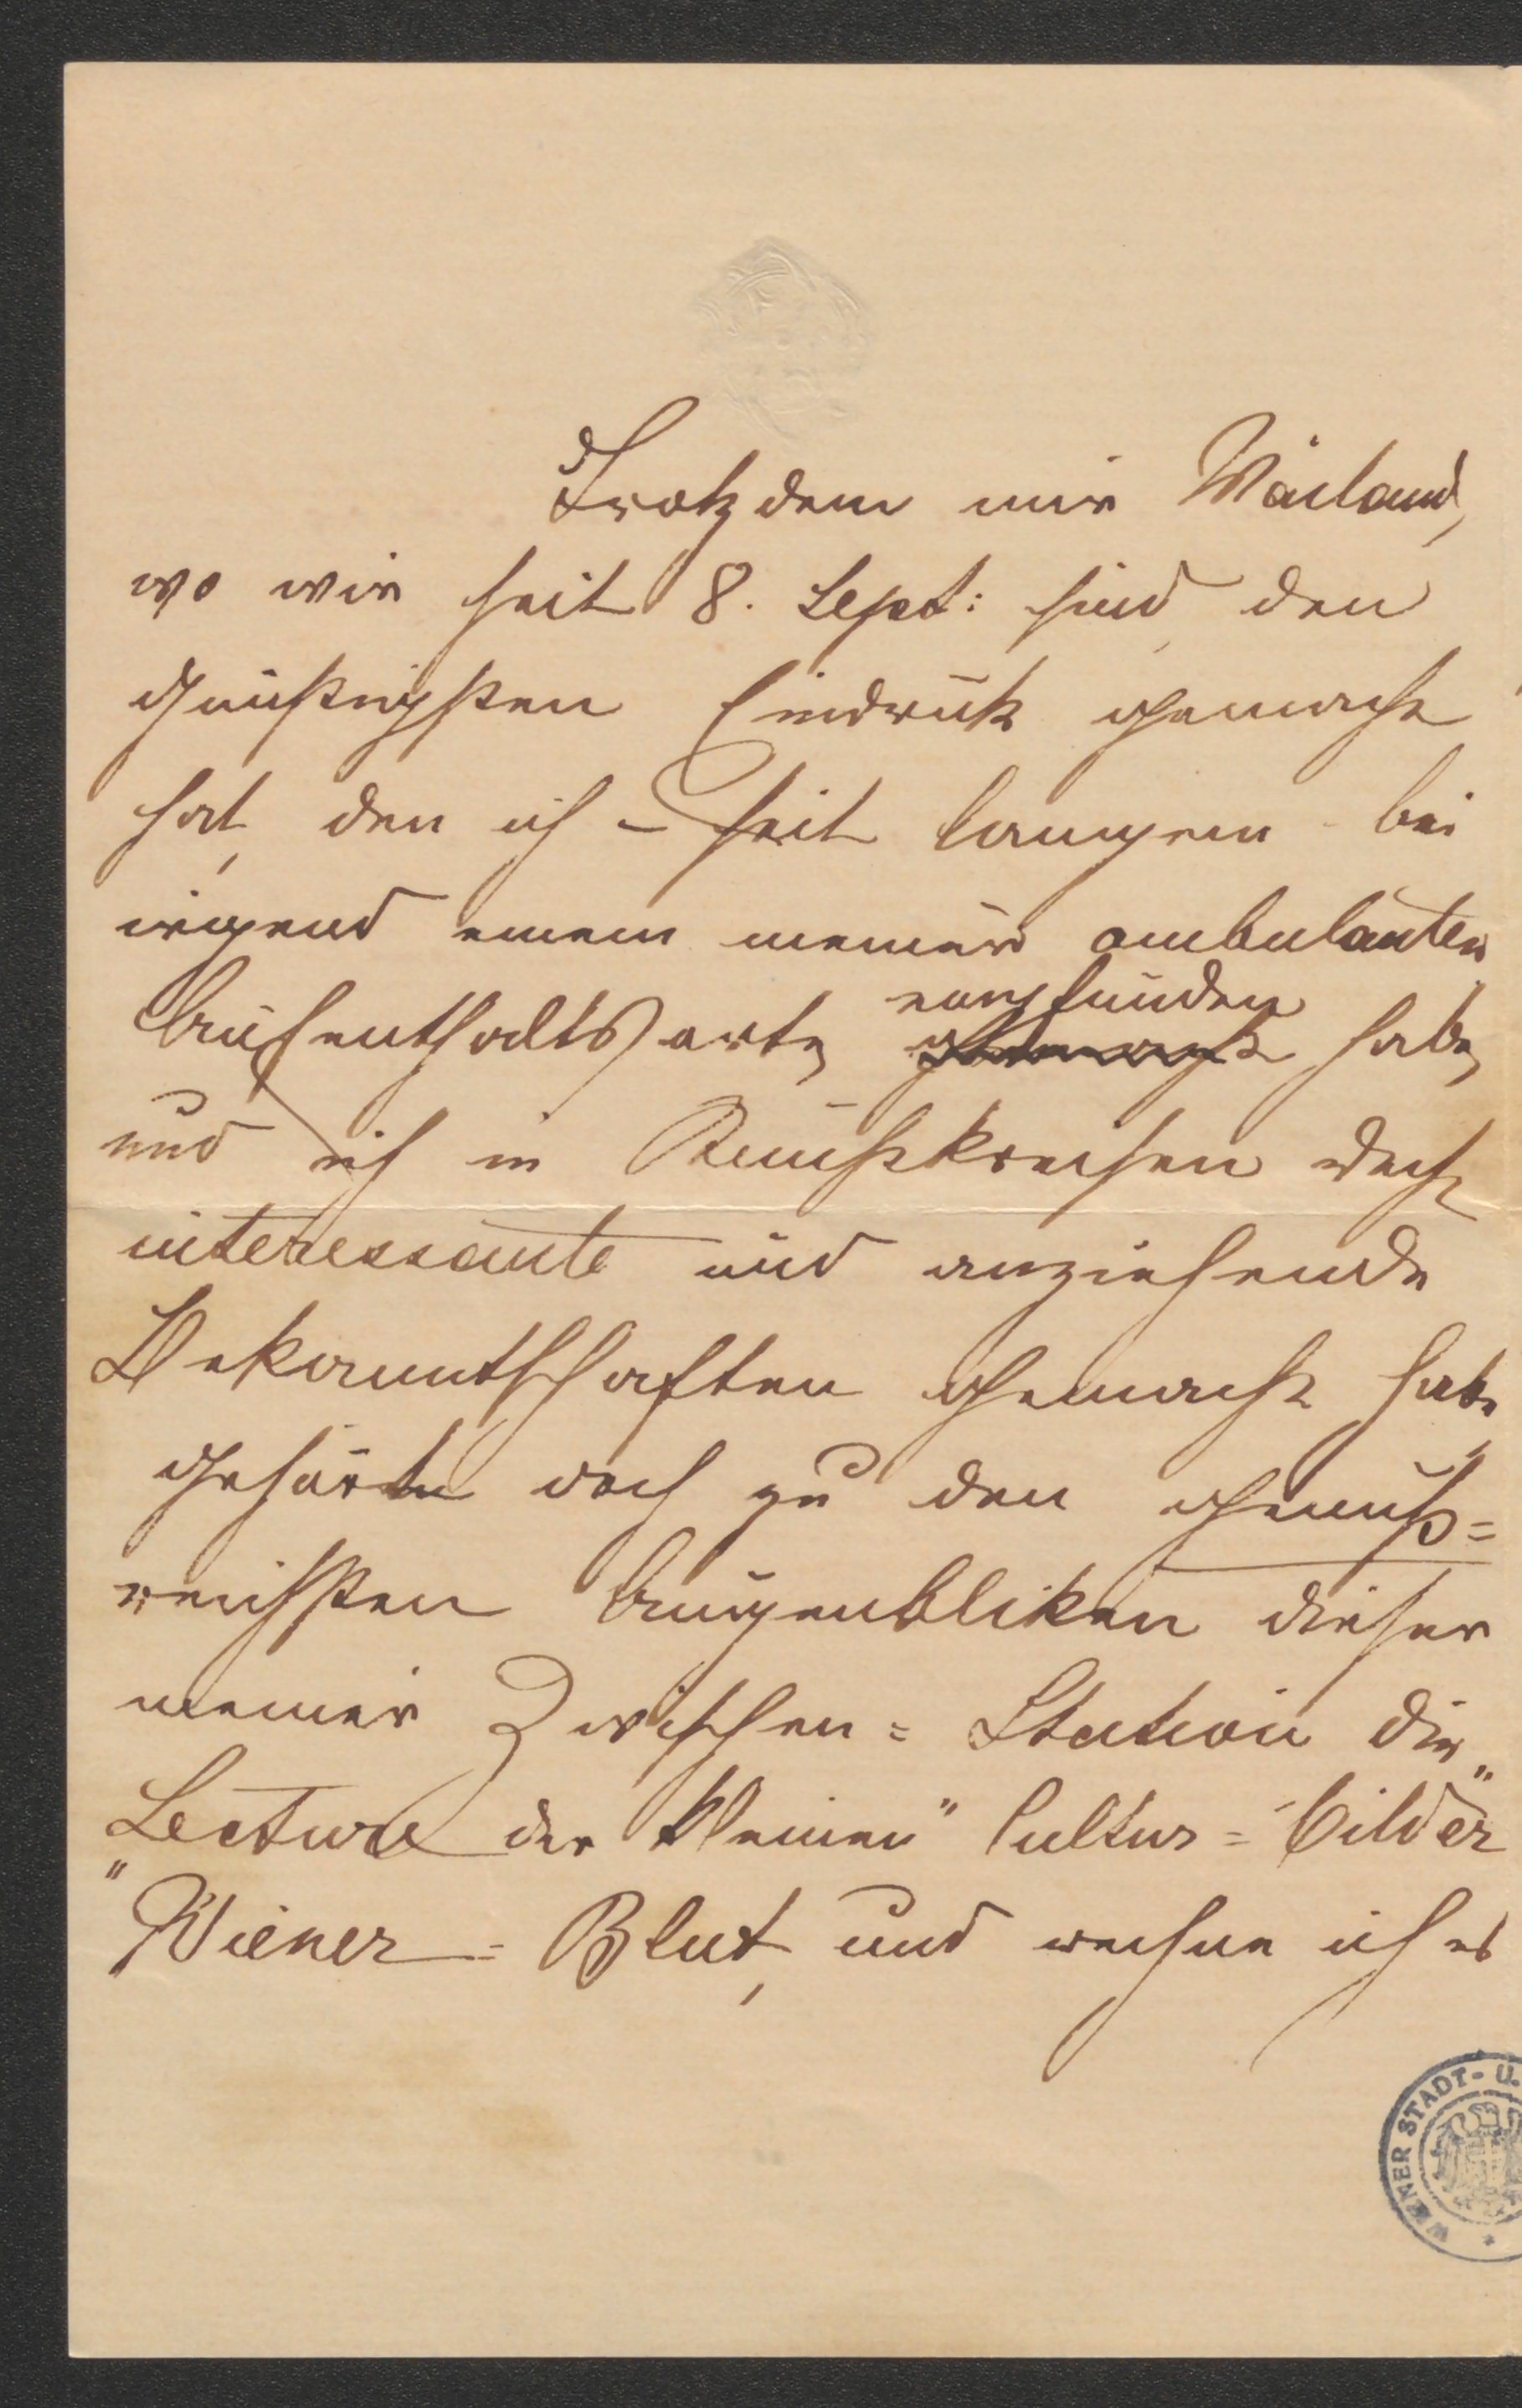 Trotzdem mir Mailand,
wo wir seit 8. Sept: sind, den
günstigsten Eindruk gemacht
hat, den ich – seit langem – bei
irgend einem meiner ambulanten
empfunden
Aufenthaltsorte, gemacht habe,
und ich in Kunstkreisen recht
interessante und anziehende
Bekanntschaften gemacht habe,
gehört doch zu den genuß=
reichsten Augenbliken dieser
meiner Zwischen=Station die
Lecture der kleinen "Cultur=bilder"
"Wiener=Blut, und rechne ich es
WIENER STADT- U.